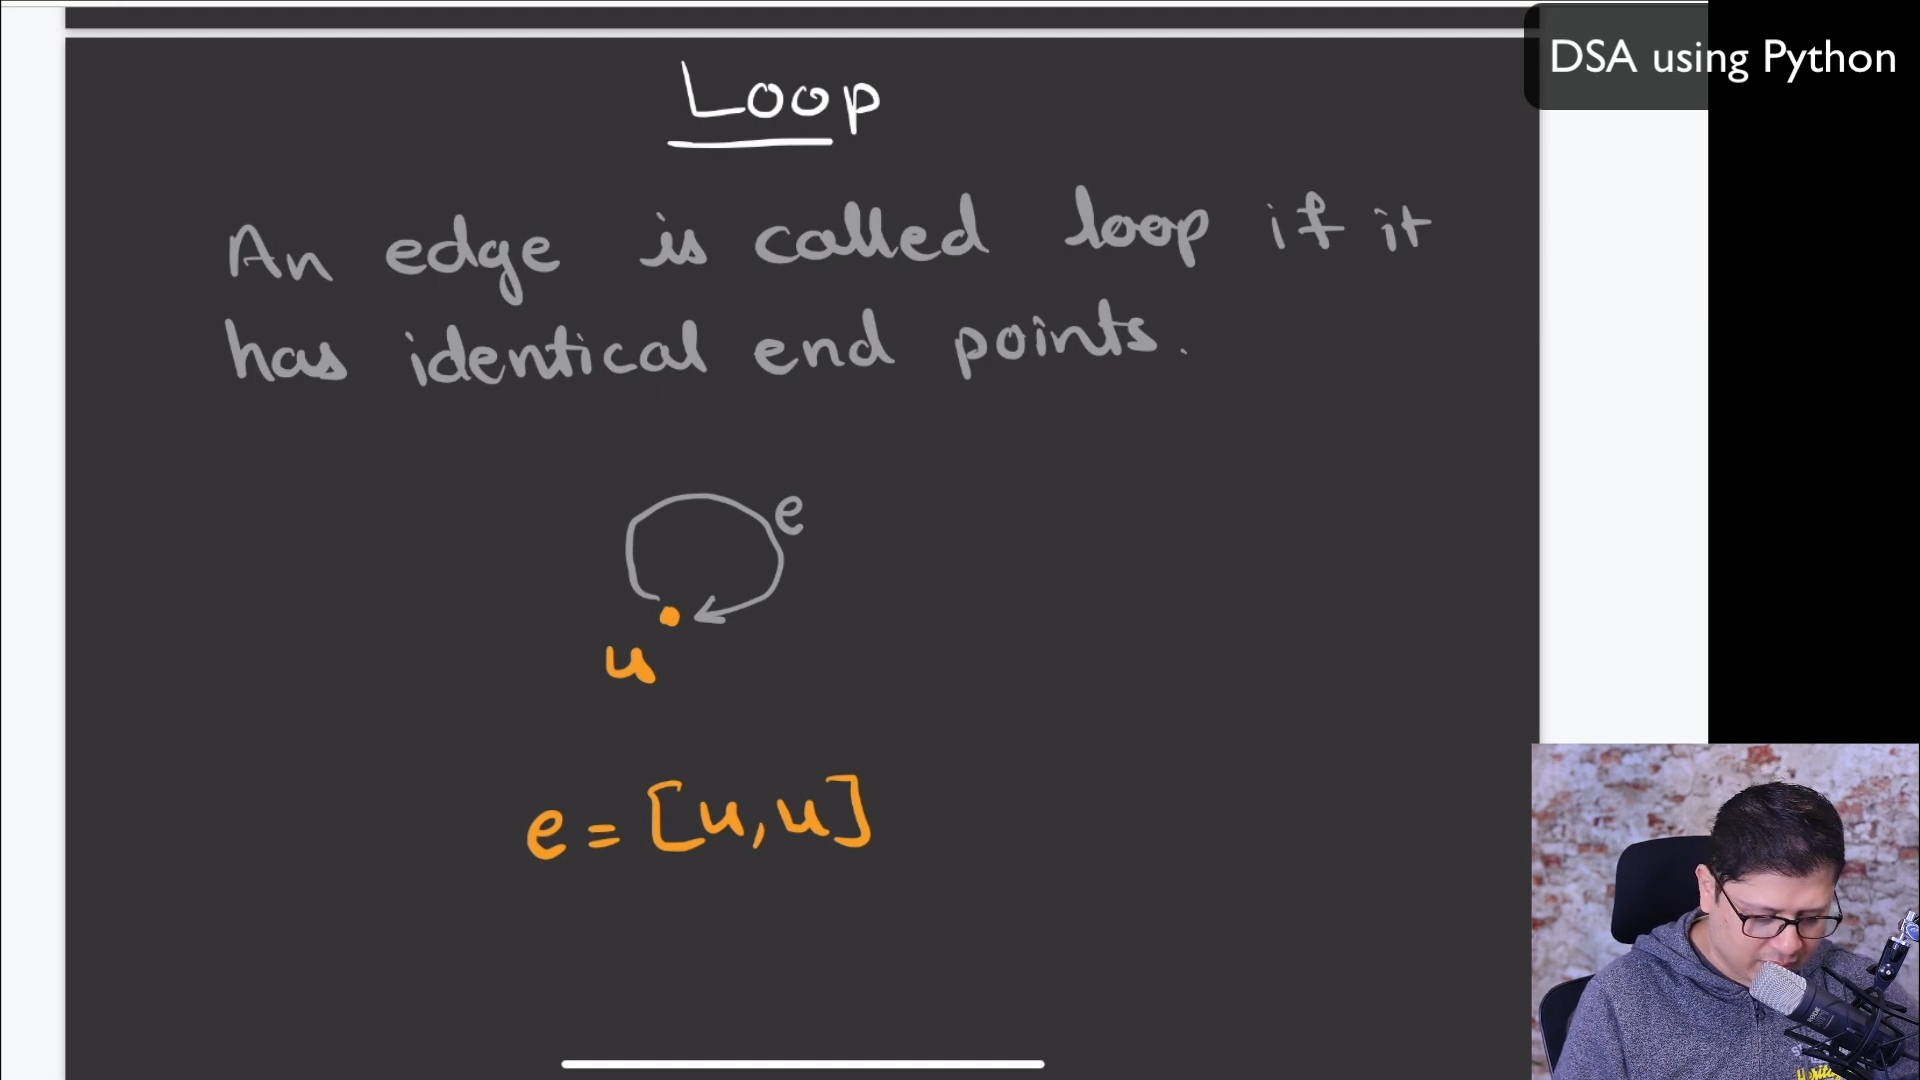 Loop
DSA using Python
An edge is called loop if it
has identical end points.
e
u
e = [u, u]